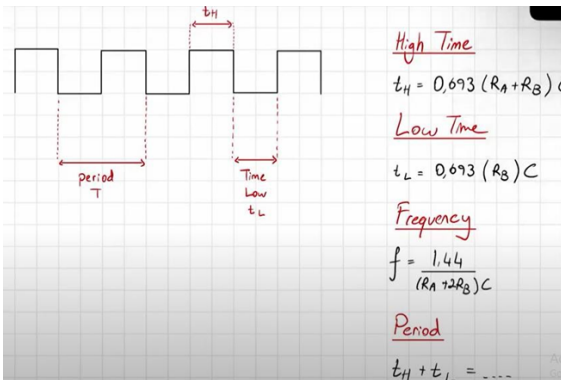 tH
period
T
Time
Low
tL
High Time
tH = 0,693 (RA+RB)
Low Time
tL = 0,693 (RB) C
Frequency
f = 1,44
(RA +2RB)C
Period
tH + tL = ....